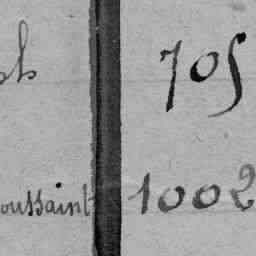 705
oussaint 1002